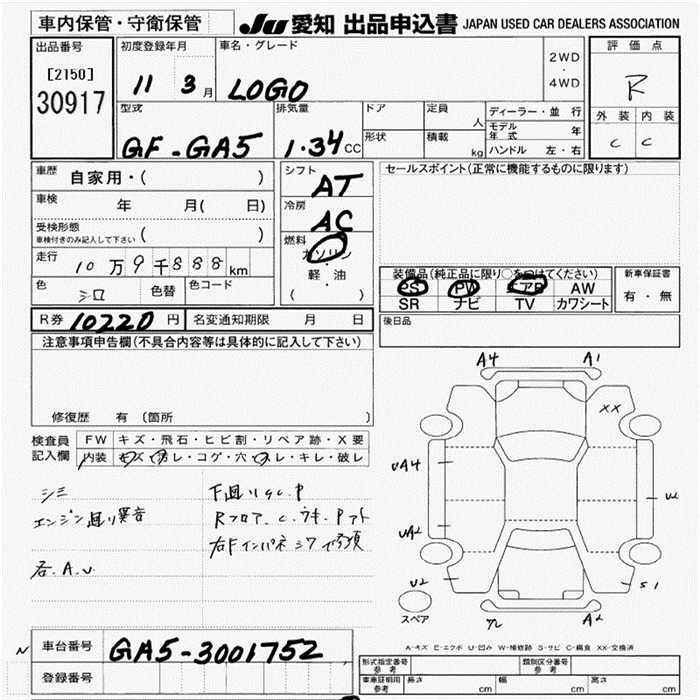 車内保管・守衛保管
JU 愛知 出品申込書 JAPAN USED CAR DEALERS ASSOCIATION
出品番号
[2150]
30917
初度登録年月
11 3 月
車名・グレード
LOGO
2WD
・
4WD
評価点
R
外装 内装
C C
型式
GF-GA5
排気量
1.34 CC
ドア
形状
定員
人
積載
kg
ディーラー・並行
モデル年式 年
ハンドル 左・右
車歴 自家用・( )
車検 年 月( 日)
受検形態
車検付きのみ記入して下さい ( )
走行 10万9千888 km
色 シロ 色替 色コード
シフト
AT
冷房
AC
燃料
ガソリン
・
軽・油
( )
セールスポイント(正常に機能するものに限ります)
装備品(純正品に限り○をつけてください)
PS PW エアB AW
SR ナビ TV カワシート
新車保証書
有・無
後日品
R券 10220 円 名変通知期限 月 日
注意事項申告欄(不具合内容等は具体的に記入して下さい)
修復歴 有 〔箇所
検査員 記入欄
FW キズ・飛石・ヒビ割・リペア跡・X要
内装 キズ・汚レ・コゲ・穴・スレ・キレ・破レ
シミ
エンジン廻り異音
各.A.U.
下廻りSC.P
Rフロア.C.
A4 A1
XX
UA4
UA2
U2
U2
S1
A2
スペア
A-キズ E-エクボ U-凹み W-補修跡 S-サビ C-腐食 XX-交換済
N 車台番号 GA5-3001752
登録番号
形式指定番号 参考
類別区分番号 参考
車庫証明用 参考 長さ cm 幅 cm 高さ cm